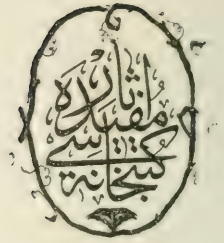 اثار مفیده
كتبخانه سی